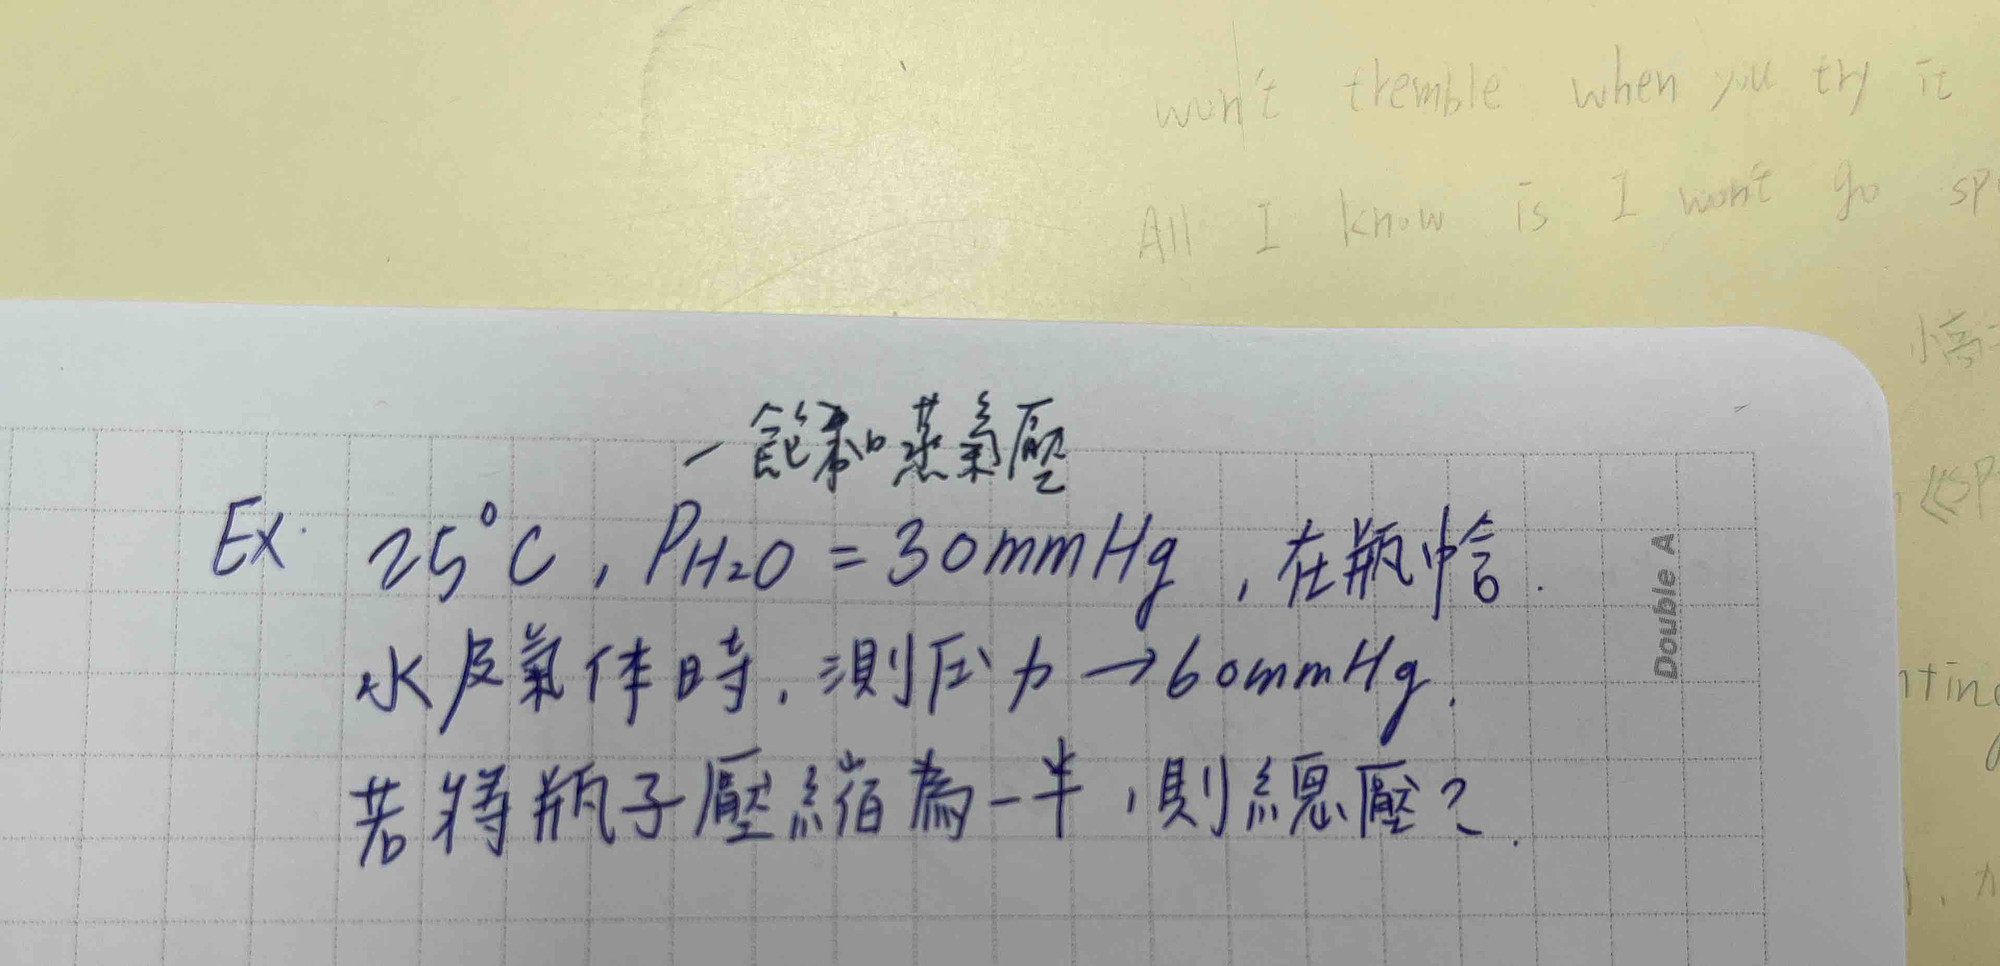 won't tremble when you try it
All I know is I won't go
一飽和蒸氣壓
Ex. 25°C, PH₂O = 30mmHg, 在瓶恰.
水及氣体時, 測压力→60mmHg.
若將瓶子壓縮為一半, 則總壓?
Double A